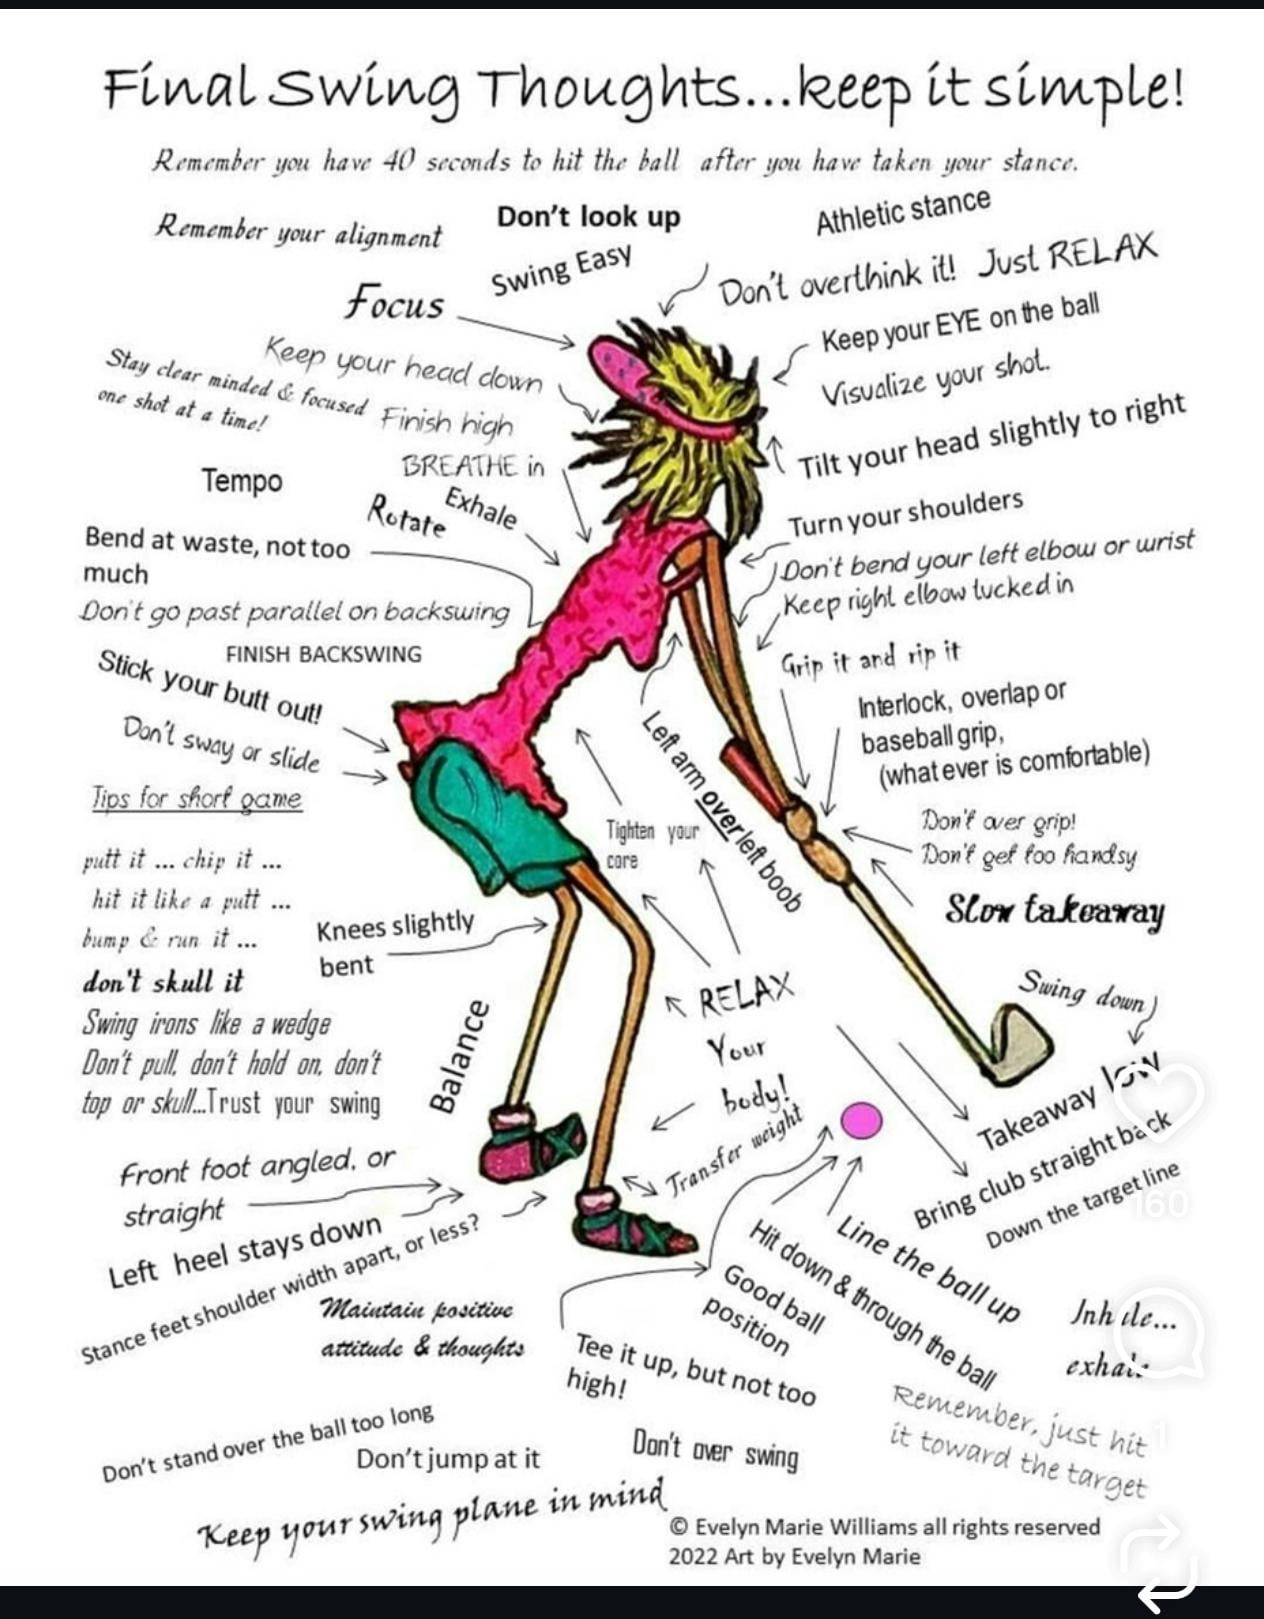 Final Swing Thoughts...keep it simple!
Remember you have 40 seconds to hit the ball after you have taken your stance.
Remember your alignment
Don't look up
Athletic stance
Swing Easy
Don't overthink it! Just RELAX
Focus
Keep your EYE on the ball
Keep your head down
Visualize your shot.
Stay clear minded & focused
one shot at a time!
Finish high
Tilt your head slightly to right
BREATHE in
Tempo
Exhale
Rotate
Turn your shoulders
Bend at waste, not too
much
Don't bend your left elbow or wrist
Keep right elbow tucked in
Don't go past parallel on backswing
FINISH BACKSWING
Grip it and rip it
Stick your butt out!
Interlock, overlap or
baseball grip,
(what ever is comfortable)
Don't sway or slide
Left arm over left boob
Tips for short game
Tighten your
core
Don't over grip!
Don't get too handsy
putt it ... chip it ...
hit it like a putt ...
bump & run it ...
don't skull it
Swing irons like a wedge
Don't pull, don't hold on, don't
top or skull...Trust your swing
Slow takeaway
Knees slightly
bent
RELAX
Your
body!
Swing down
Balance
Takeaway low
Transfer weight
Bring club straight back
Down the target line
Front foot angled, or
straight
Left heel stays down
Stance feet shoulder width apart, or less?
Line the ball up
Hit down & through the ball
Good ball
position
Maintain positive
attitude & thoughts
Tee it up, but not too
high!
Inhale...
exhale
Remember, just hit
it toward the target
Don't stand over the ball too long
Don't jump at it
Don't over swing
Keep your swing plane in mind
© Evelyn Marie Williams all rights reserved
2022 Art by Evelyn Marie
160
1